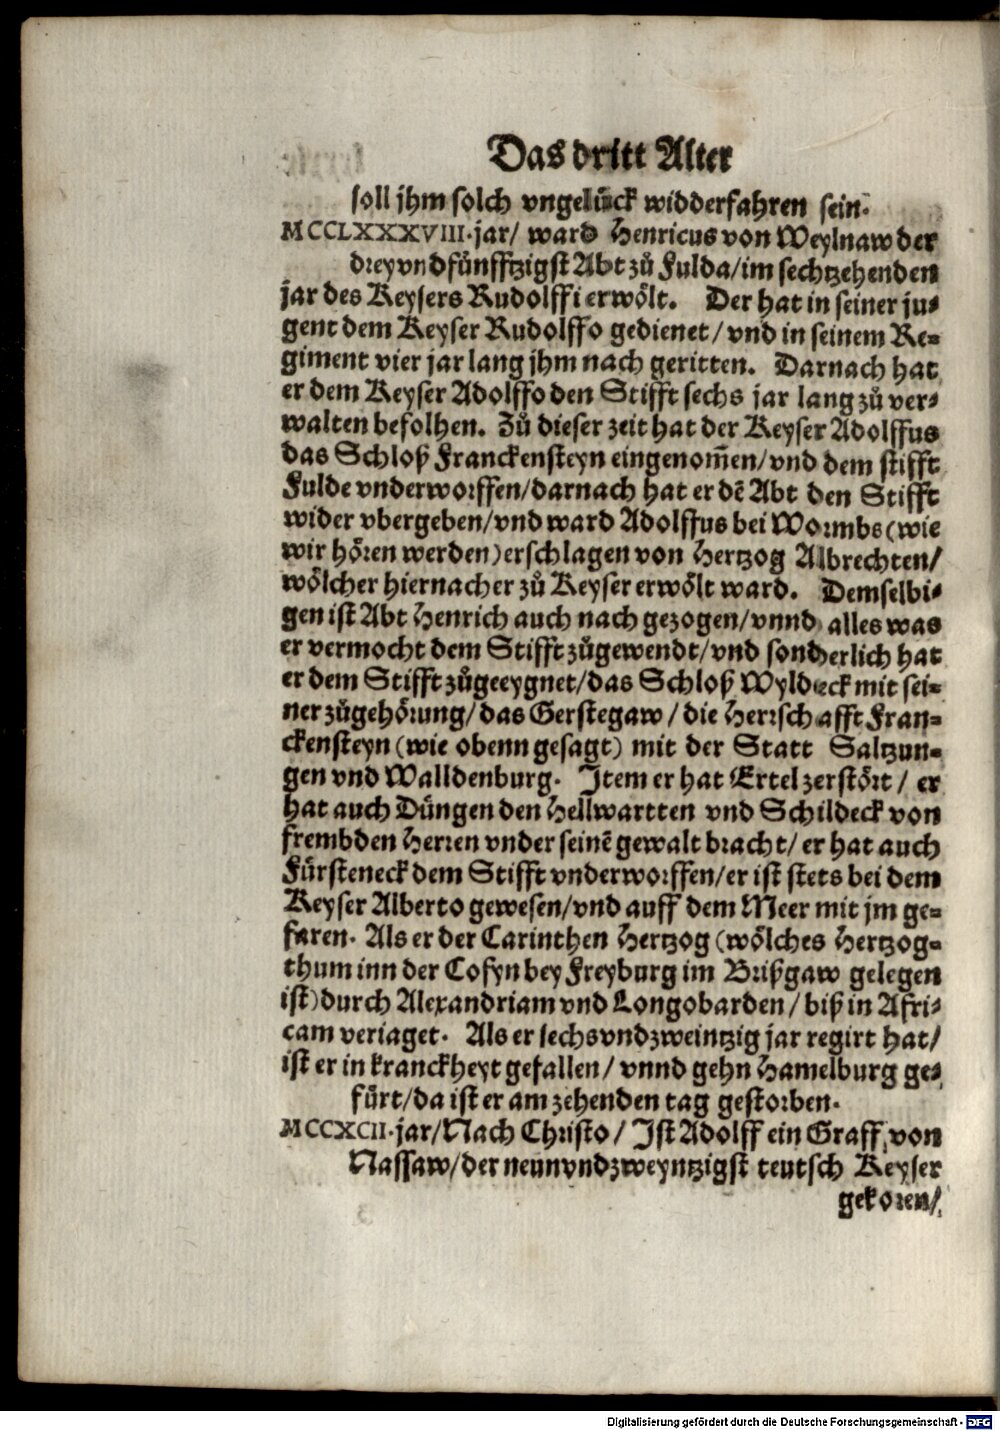 Das dritt Alter
soll jhm solch vngelück widderfahren sein.
MCCLXXXVIII. jar/ ward Henricus von Weylnaw der
dreyvndfünfftzigst Abt zů Fulda/im sechtzehenden
jar des Keysers Rudolffi erwölt. Der hat in seiner ju⸗
gent dem Keyser Rudolffo gedienet/ vnd in seinem Re⸗
giment vier jar lang jhm nach geritten. Darnach hat
er dem Keyser Adolffo den Stifft sechs jar lang zů ver⸗
walten befolhen. Zů dieser zeit hat der Keyser Adolffus
das Schloß Franckensteyn eingenom̃en/vnd dem stifft
Fulde vnderworffen/darnach hat er dẽ Abt den Stifft
wider vbergeben/vnd ward Adolffus bei Wormbs (wie
wir hören werden) erschlagen von Hertzog Albrechten/
wölcher hiernacher zů Keyser erwölt ward. Demselbi⸗
gen ist Abt Henrich auch nach gezogen/vnnd alles was
er vermocht dem Stifft zůgewendt/vnd sonderlich hat
er dem Stifft zůgeeygnet/das Schloß Wyldeck mit sei⸗
ner zůgehörung/das Gerstegaw/die Herrschafft Fran⸗
ckensteyn (wie obenn gesagt) mit der Statt Saltzun⸗
gen vnd Walldenburg. Item er hat Ertel zerstört/ er
hat auch Düngen den Hellwartten vnd Schildeck von
frembden Herren vnder seinẽ gewalt bracht/ er hat auch
Fürsteneck dem Stifft vnderworffen/er ist stets bei dem
Keyser Alberto gewesen/vnd auff dem Meer mit jm ge⸗
faren. Als er der Carinthen Hertzog (wölches Hertzog⸗
thum inn der Cosyn bey Freyburg im Brißgaw gelegen
ist) durch Alexandriam vnd Longobarden/ biß in Afri⸗
cam veriaget. Als er sechsvndzweintzig jar regirt hat/
ist er in kranckheyt gefallen/ vnnd gehn Hamelburg ge⸗
fürt/da ist er am zehenden tag gestorben.
MCCXCII. jar/Nach Christo/ Ist Adolff ein Graff von
Nassaw/der neunvndzweyntzigst teutsch Keyser
gekoren/
Digitalisierung gefördert durch die Deutsche Forschungsgemeinschaft - DFG